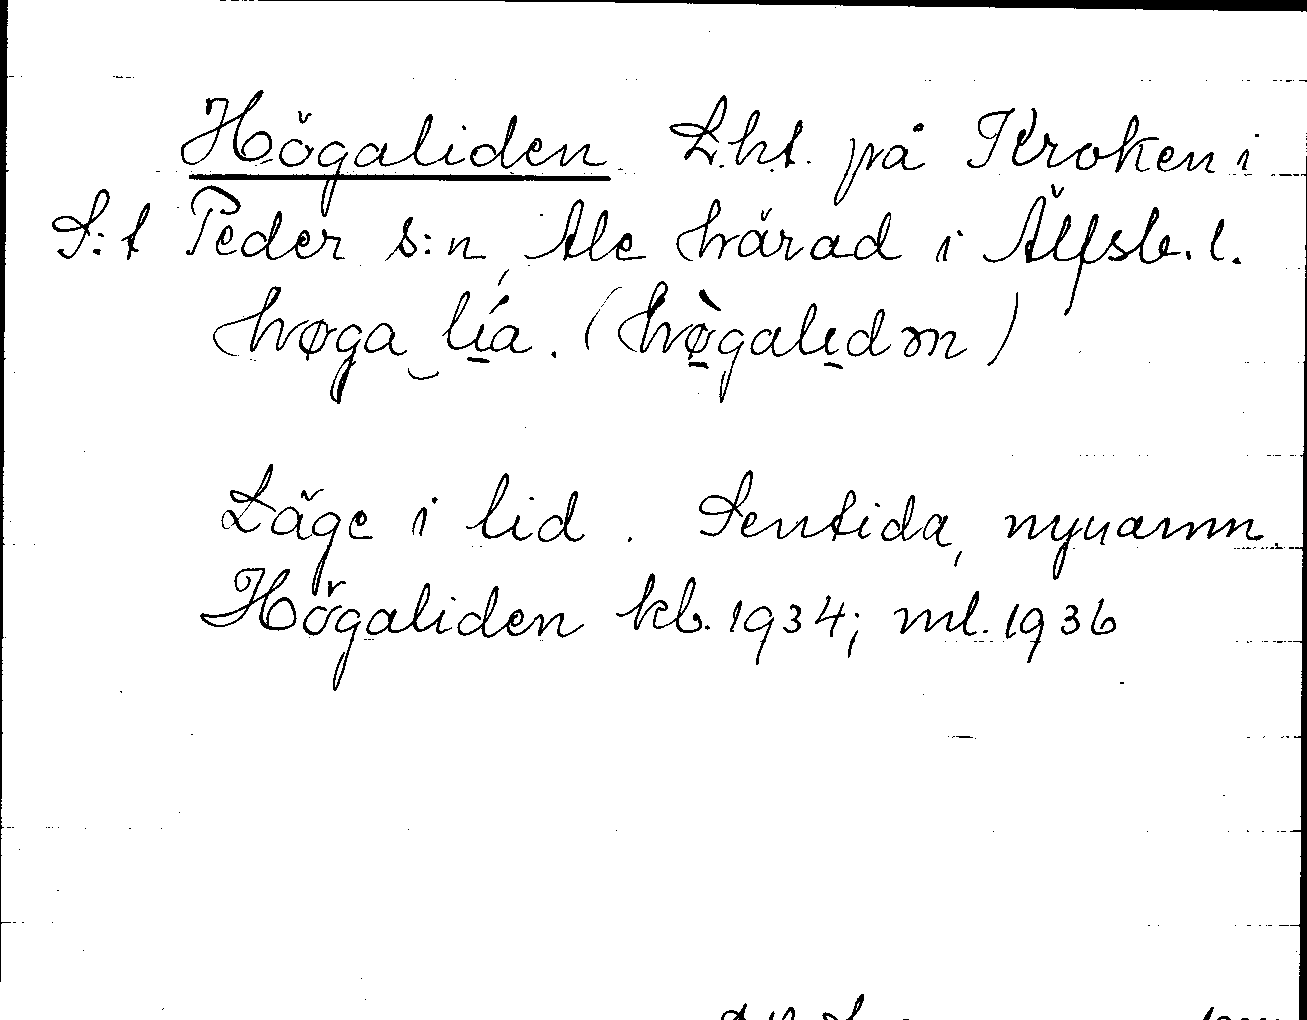 Högaliden L.ht. på Kroken i
S:t Peder s:n, Ale härad i Älfsb. l.
høga‿lía. (hø̀galıdən)
Läge i lid. Sentida, nynamn.
Högaliden kb. 1934; ml. 1936